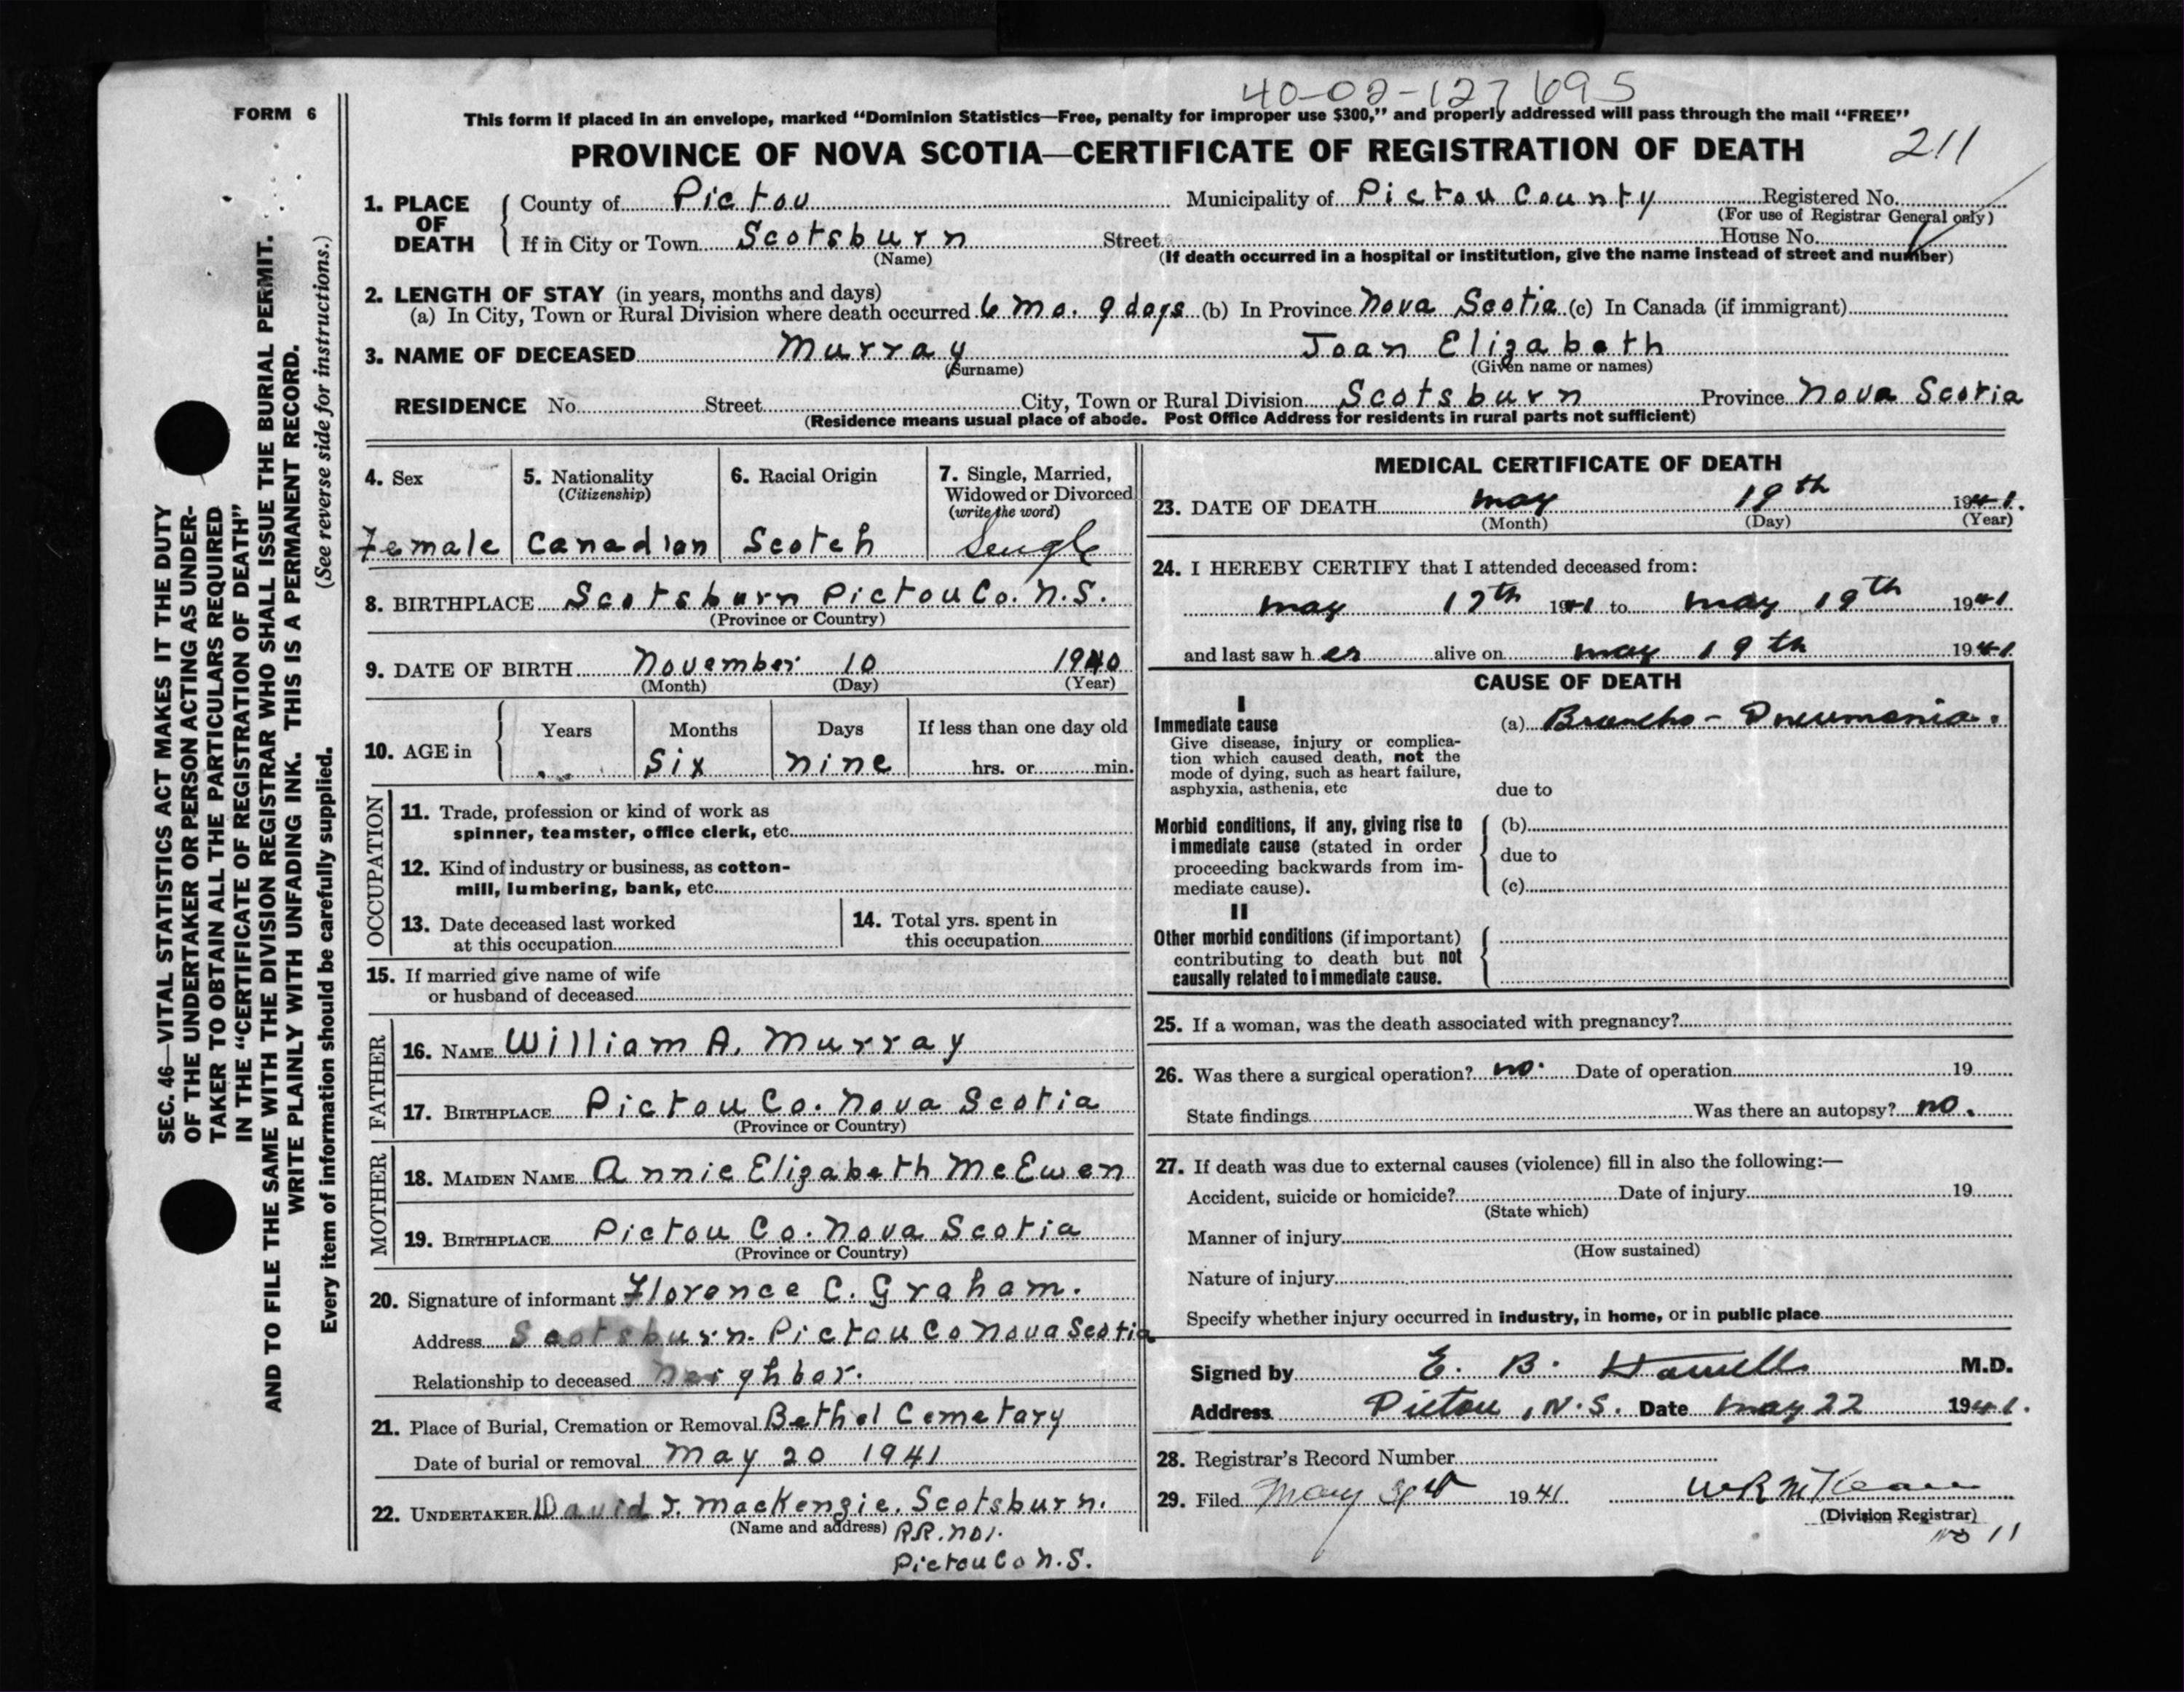 40-02-127695
FORM 6
This form if placed in an envelope, marked “Dominion Statistics—Free, penalty for improper use $300,” and properly addressed will pass through the mail “FREE”
PROVINCE OF NOVA SCOTIA—CERTIFICATE OF REGISTRATION OF DEATH 211
SEC. 46—VITAL STATISTICS ACT MAKES IT THE DUTY
OF THE UNDERTAKER OR PERSON ACTING AS UNDER-
TAKER TO OBTAIN ALL THE PARTICULARS REQUIRED
IN THE “CERTIFICATE OF REGISTRATION OF DEATH”
AND TO FILE THE SAME WITH THE DIVISION REGISTRAR WHO SHALL ISSUE THE BURIAL PERMIT.
WRITE PLAINLY WITH UNFADING INK. THIS IS A PERMANENT RECORD.
Every item of information should be carefully supplied. (See reverse side for instructions.)
1. PLACE OF DEATH
County of Pictou Municipality of Pictou County Registered No.
(For use of Registrar General only)
If in City or Town Scotsburn Street House No.
(Name) (If death occurred in a hospital or institution, give the name instead of street and number)
2. LENGTH OF STAY (in years, months and days)
(a) In City, Town or Rural Division where death occurred 6 mo. 9 days (b) In Province Nova Scotia (c) In Canada (if immigrant)
3. NAME OF DECEASED Murray Joan Elizabeth
(Surname) (Given name or names)
RESIDENCE No. Street City, Town or Rural Division Scotsburn Province Nova Scotia
(Residence means usual place of abode. Post Office Address for residents in rural parts not sufficient)
4. Sex
Female
5. Nationality
(Citizenship)
Canadian
6. Racial Origin
Scotch
7. Single, Married,
Widowed or Divorced
(write the word)
Single
8. BIRTHPLACE Scotsburn Pictou Co. N.S.
(Province or Country)
9. DATE OF BIRTH November 10 1940
(Month) (Day) (Year)
10. AGE in
Years Months Days If less than one day old
Six nine hrs. or min.
OCCUPATION
11. Trade, profession or kind of work as
spinner, teamster, office clerk, etc.
12. Kind of industry or business, as cotton-
mill, lumbering, bank, etc.
13. Date deceased last worked
at this occupation
14. Total yrs. spent in
this occupation
15. If married give name of wife
or husband of deceased
FATHER
16. NAME William A. Murray
17. BIRTHPLACE Pictou Co. Nova Scotia
(Province or Country)
MOTHER
18. MAIDEN NAME Annie Elizabeth McEwen
19. BIRTHPLACE Pictou Co. Nova Scotia
(Province or Country)
20. Signature of informant Florence C. Graham.
Address Scotsburn. Pictou Co Nova Scotia
Relationship to deceased Neighbor.
21. Place of Burial, Cremation or Removal Bethel Cemetary
Date of burial or removal May 20 1941
22. UNDERTAKER David J. MacKenzie, Scotsburn.
(Name and address) R.R. no 1.
Pictou Co N.S.
MEDICAL CERTIFICATE OF DEATH
23. DATE OF DEATH May 19th 1941.
(Month) (Day) (Year)
24. I HEREBY CERTIFY that I attended deceased from:
May 17th 1941 to May 19th 1941
and last saw her alive on May 19th 1941
CAUSE OF DEATH
I
Immediate cause (a) Broncho-Pneumonia.
Give disease, injury or complica-
tion which caused death, not the
mode of dying, such as heart failure,
asphyxia, asthenia, etc due to
Morbid conditions, if any, giving rise to (b)
immediate cause (stated in order due to
proceeding backwards from im-
mediate cause). (c)
II
Other morbid conditions (if important)
contributing to death but not
causally related to immediate cause.
25. If a woman, was the death associated with pregnancy?
26. Was there a surgical operation? no. Date of operation 19
State findings Was there an autopsy? no.
27. If death was due to external causes (violence) fill in also the following:—
Accident, suicide or homicide? Date of injury 19
(State which)
Manner of injury
(How sustained)
Nature of injury
Specify whether injury occurred in industry, in home, or in public place
Signed by E. B. M.D.
Address Pictou, N.S. Date May 22 1941.
28. Registrar's Record Number
29. Filed May 1941
(Division Registrar)
no 11